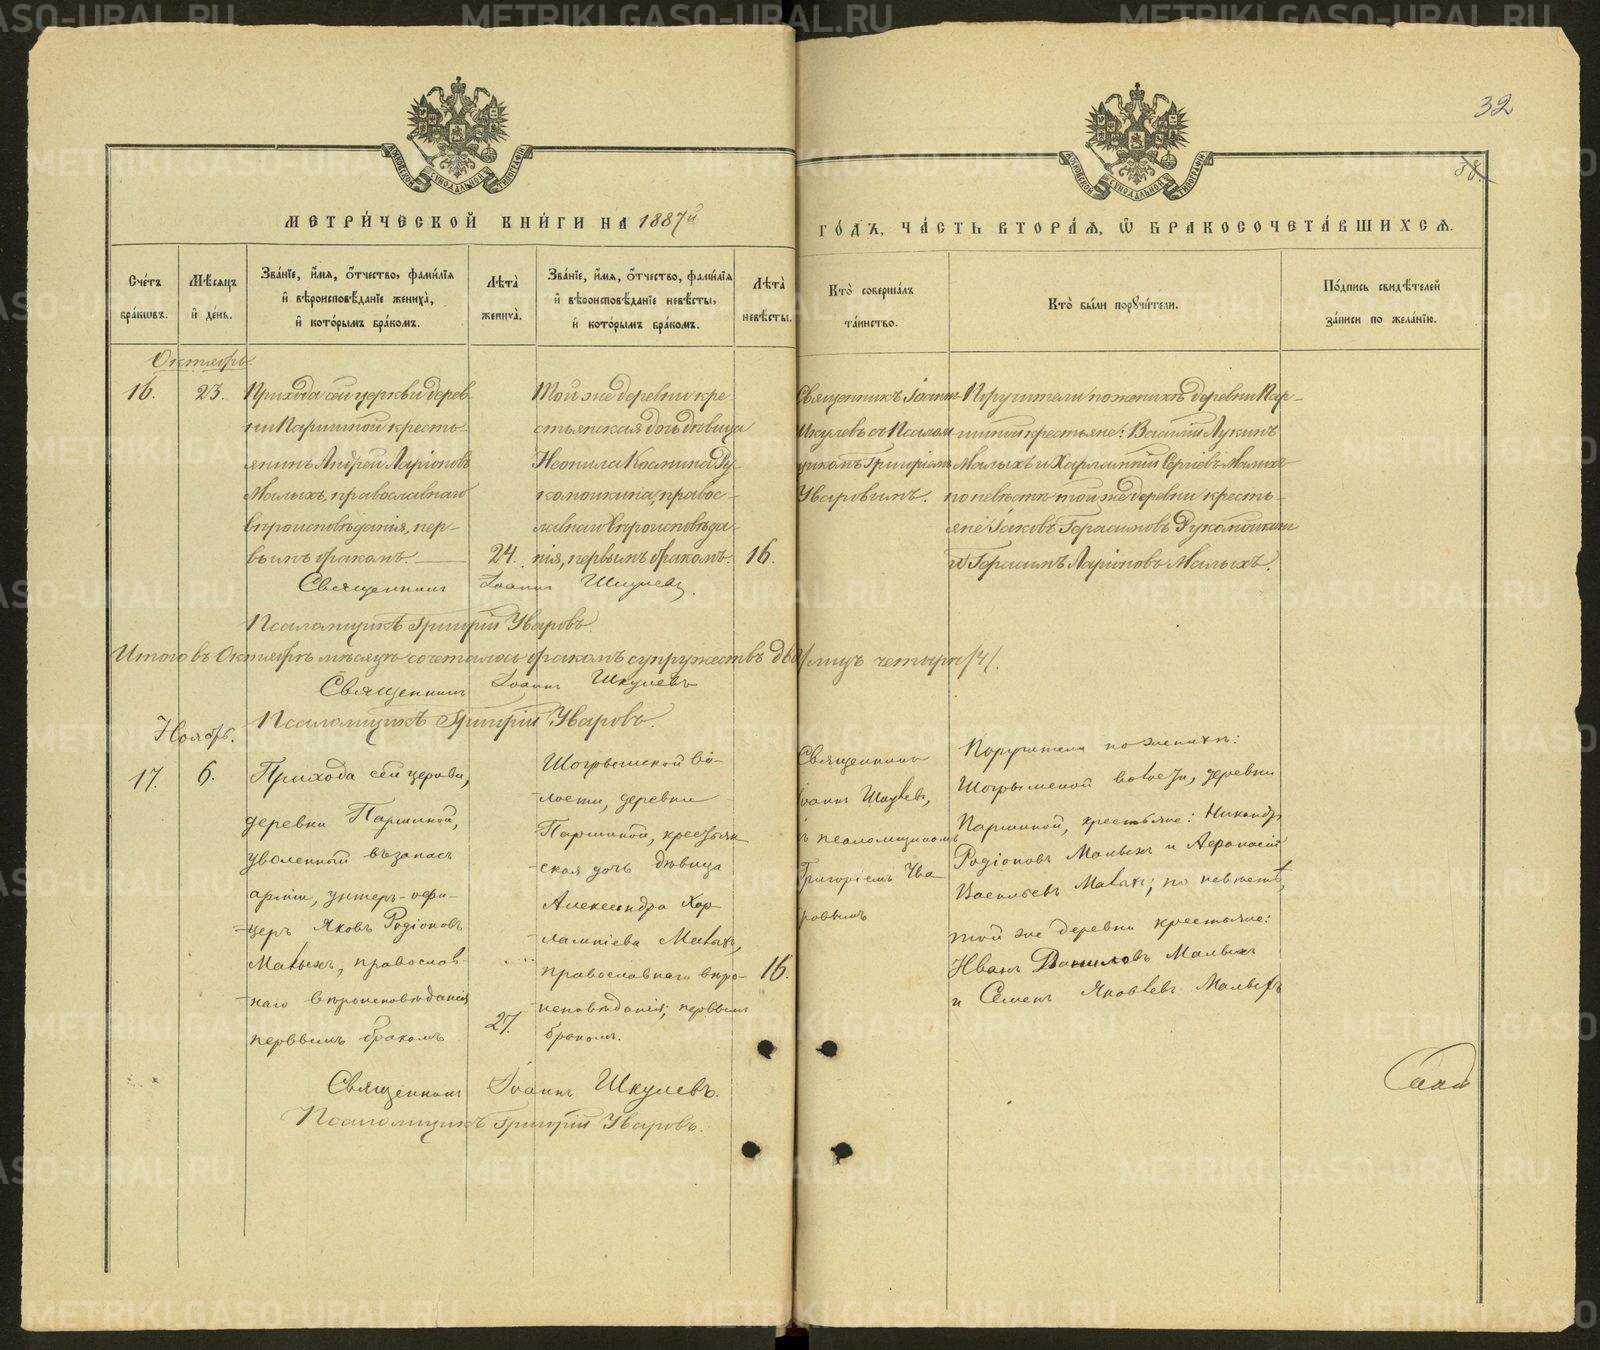 32
38.
МОСКОВСКОЙ СѴНОДАЛЬНОЙ ТИПОГРАФІИ
МОСКОВСКОЙ СѴНОДАЛЬНОЙ ТИПОГРАФІИ
МЕТРИ́ЧЕСКОЙ КНИ́ГИ НА 1887й ГО́ДЪ, ЧА́СТЬ ВТОРА́Ѧ, Ѽ БРАКОСОЧЕТА́ВШИХСѦ.
Сче́тъ бра́ковъ.
Мѣ́сяцъ и҆ де́нь.
Зва́нїе, и҆́мѧ, ѻ҆́тчество, фами́лїѧ и҆ вѣроисповѣ́данїе жениха̀, и҆ кото́рымъ бра́комъ.
Лѣта̀ жениха̀.
Зва́нїе, и҆́мѧ, ѻ҆́тчество, фами́лїѧ и҆ вѣроисповѣ́данїе невѣ́сты, и҆ кото́рымъ бра́комъ.
Лѣта̀ невѣ́сты.
Кто̀ соверша́лъ та́инство.
Кто̀ бы́ли порꙋчи́тели.
По́дпись свидѣ́телей за́писи по жела́нїю.
Октябрь.
16.
23.
Прихода сей церкви дерев-
ни Паршиной кресть-
янинъ Андрей Ларіоновъ
Малыхъ, православнаго
вѣроисповѣданія, пер-
вымъ бракомъ.
24.
Той же деревни кре
стьянская дочь дѣвица
Неонила Космина Ру-
комойкина, правос-
лавнаго вѣроисповѣда-
нія, первымъ бракомъ.
16.
Священникъ Іоаннъ
Шкулевъ съ Псалом-
щикомъ Григоріемъ
Уваровымъ.
Поручители по женихѣ деревни Пар-
шиной крестьяне: Василій Лукинъ
Малыхъ и Харлампій Сергѣевъ Малыхъ
по невѣстѣ той же деревни кресть-
яне Іаковъ Герасимовъ Рукомойкинъ
и Герасимъ Ларіоновъ Малыхъ.
Священникъ Іоаннъ Шкулевъ.
Псаломщикъ Григорій Уваровъ.
Итого въ Октябрѣ мѣсяцѣ сочеталось бракомъ супружествъ два, лицъ четыре /4/.
Священникъ Іоаннъ Шкулевъ
Псаломщикъ Григорій Уваровъ.
Ноябрь.
17.
6.
Прихода сей церкви,
деревни Паршиной,
уволенный въ запасъ
арміи, унтеръ-офи-
-церъ Яковъ Родіоновъ
Малыхъ, православ-
-наго вѣроисповѣданія
первымъ бракомъ
27.
Шогрышской во-
-лости, деревни
Паршиной, крестьян
ская дочь дѣвица
Александра Хар-
лампіева Малыхъ,
православнаго вѣро-
исповѣданія, первымъ
бракомъ.
16.
Священникъ
Іоаннъ Шкулевъ,
съ псаломщикомъ
Григоріемъ Ува
ровымъ
Поручители по женихѣ:
Шогрышской волости, деревни
Паршиной, крестьяне: Никандръ
Родіоновъ Малыхъ и Афанасій
Васильевъ Малыхъ; по невѣстѣ,
той же деревни крестьяне:
Иванъ Даниловъ Малыхъ
и Семенъ Яковлевъ Малыхъ
Священникъ Іоаннъ Шкулевъ.
Псаломщикъ Григорій Уваровъ.